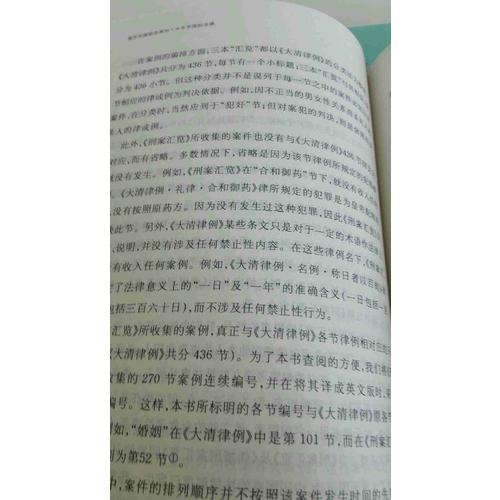 ……在案例的编排方面,三本“汇览”都以《大清律例》的分类
《大清律例》共分为436节,每节有一个小标题;三本“汇览”
分为436小节。但这种分类并不是说列于每一节之中的案件
节相应的律或例为判决依据。例如,因不正当的男女性关系
案件,在分类时,当然应列于“犯奸”节;但对案犯的判决,则
杀人的律或例。
此外,《刑案汇览》所收集的案件也没有与《大清律例》436节
对应,而有省略。多数情况下,省略是因为该节律例所规定的
就没有发生。例如,《刑案汇览》在“合和御药”节下,就没有收入
。《大清律例·礼律·合和御药》律所规定的犯罪是为皇帝
没有按照原药方。因为没有发生过这种犯罪,因此《刑案汇
缺此节。另外,《大清律例》某些条文只是对于一定的术语作
、说明,并没有涉及任何禁止性内容。在这些律例名下,《刑案
有收入任何案例。例如,《大清律例·名例·称日者以百刻》
定了法律意义上的“一日”及“一年”的准确含义(一日包括一
包括三百六十日),而不涉及任何禁止性行为。
汇览》所收集的案例,真正与《大清律例》各节律例相对应的
《大清律例》共分436节)。为了本书查阅的方便,我们将
收集的270节案例连续编号,并在将其译成英文版时,
编号。这样,本书所标明的各节编号与《大清律例》原各节
例如,“婚姻”在《大清律例》中是第101节,而在《刑案汇
则为第52节①。
中,案件的排列顺序并不按照该案件发生时间的先